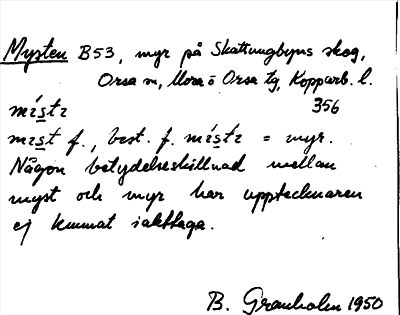 Mysten B53, myr på Skattungbyns skog,
Orsa sn, Mora o Orsa tg, Kopparb. l.
mɪ́stɪ 356
mɪst f., best. f. mɪ́stɪ = myr.
Någon betydelseskillnad mellan
myst och myr har upptecknaren
ej kunnat iakttaga.
B. Granholm 1950